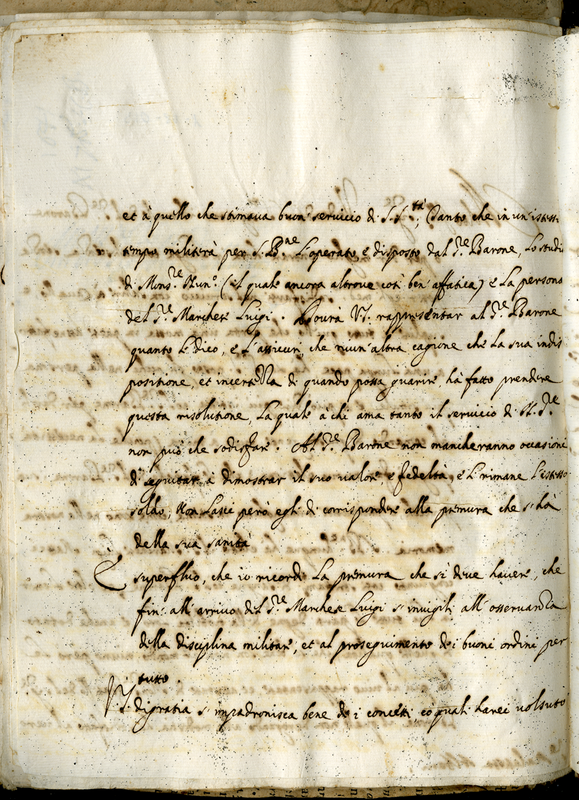 et à quello che stimava buon servicio di S. S.tà, Tanto che in un istess
tempo militerà per S. B.ne L'operato, e disposto dal S.re Barone, Lo studi
di Mons.re Nun.o (il quale ancora altrove così ben' affatica) e La persona
del S.re Marchese Luigi. Dourà V.S. rappresentar al S.r Barone
quanto Le dico, e L'assicuri, che niun'altra cagione che La sua indis
positione, et incertezza di quando possa guarire hà fatto prendere
questa risolutione, La quale à chi ama tanto il servicio di N. S.re
non può che sodisfare. Al S.re Barone non mancheranno occasioni
di seguitare à dimostrar il suo valore e fedeltà, e Li rimane L'istesso
soldo, Non Lasci però egli di corrispondere alla premura che s'hà
della sua sanità
È superfluo, che io ricordi La premura che si deve havere, che
fin' all' arrivo del S.re Marchese Luigi s'invigili all' osservanza
della disciplina militare, et al proseguimento de i buoni ordini per
tutto.
V.S. di gratia s'impadronisca bene de i concetti, co quali harei volsuto